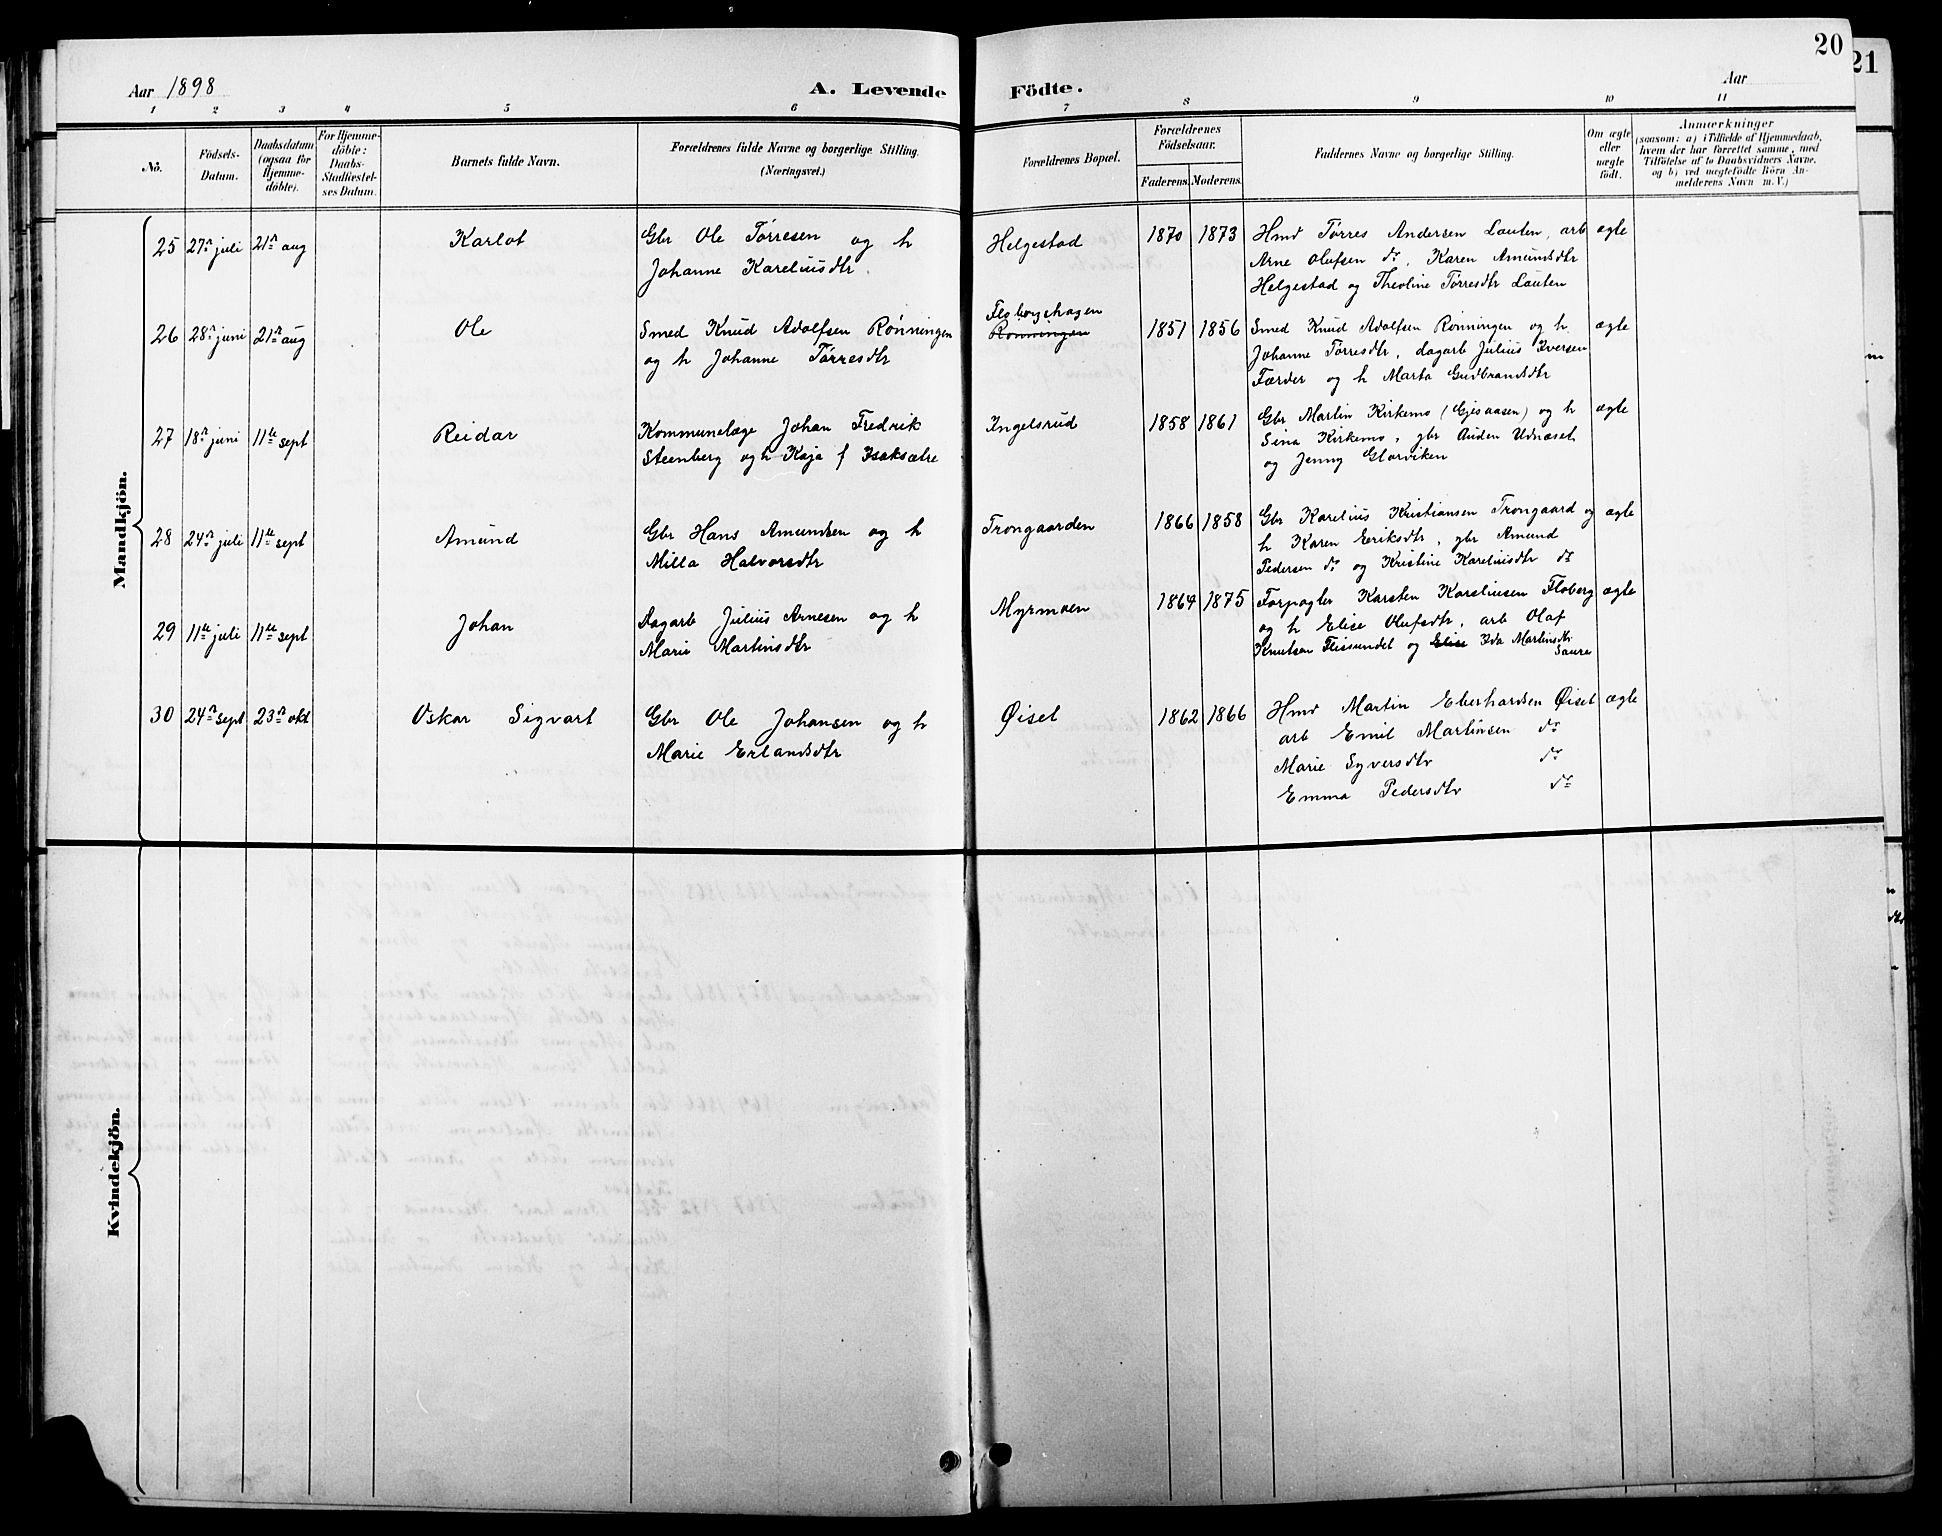 20
21
Aar 1898
A. Levende Födte.
Aar
1 2 3 4 5 6 7 8 9 10 11
Nö.
Födsels-
Datum.
Daabsdatum
(ogsaa for
Hjemme-
döbte).
For Hjemme-
döbte:
Daabs-
Stadfæstel-
ses Datum.
Barnets fulde Navn.
Forældrenes fulde Navne og borgerlige Stilling.
(Næringsvei.)
Forældrenes Bopæl.
Forældrenes
Födselsaar.
Faderens. Moderens.
Faddernes Navne og borgerlige Stilling.
Om ægte
eller
uægte
födt.
Anmærkninger
(saasom: a) i Tilfælde af Hjemmedaab,
hvem der har forrettet samme, med
Tilföielse af to Daabsvidners Navne,
og b) ved uægtefödte Börn An-
melderens Navn m. V.)
Mandkjön.
25 27de juli 21de aug Karlot Gbr Ole Tørresen og h
Johanne Kareliusdtr.
Helgestad 1870 1873 Hmd Tørres Andersen Lauten, arb ægte
Arne Olufsen do, Karen Amundsdtr
Helgestad og Theoline Tørresdtr Lauten
26 28de juni 21de aug Ole Smed Knud Adolfsen Rønningen
og h Johanne Tørresdtr
Floberghagen
Rønningen
1851 1856 Smed Knud Adolfsen Rønningen og h ægte
Johanne Tørresdtr, dagarb Julius Iversen
Færder og h Marta Gudbrandsdtr
27 18de juni 11te sept Reidar Kommunelæge Johan Fredrik
Steenberg og h Kaja f Isaksætre
Ingelsrud 1858 1861 Gbr Martin Kirkemo (Gjesaasen) og h ægte
Sina Kirkemo, gbr Auden Udnæset
og Jenny Glorviken
28 24de juli 11te sept Amund Gbr Hans Amundsen og h
Milla Halvorsdtr
Trongaarden 1866 1858 Gbr Karelius Kristiansen Trongaard og ægte
h Karen Eriksdtr, gbr Amund
Pedersen do og Kristine Kareliusdtr do
29 11te juli 11te sept Johan Dagarb Julius Arnesen og h
Marie Martinsdtr
Myrmoen 1864 1875 Forpagter Karsten Karelinsen Floberg ægte
og h Elise Olufsdtr, arb Olaf
Knutsen Flissundet og Elise Ida Martinsdtr
Saure
30 24de sept 23de okt Oskar Sigvart Gbr Ole Johansen og h
Marie Erlandsdtr
Øiset 1862 1866 Hmd Martin Eberhardsen Øiset ægte
arb Emil Martinsen do
Marie Syversdtr do
Emma Pedersdtr do
Kvindekjön.